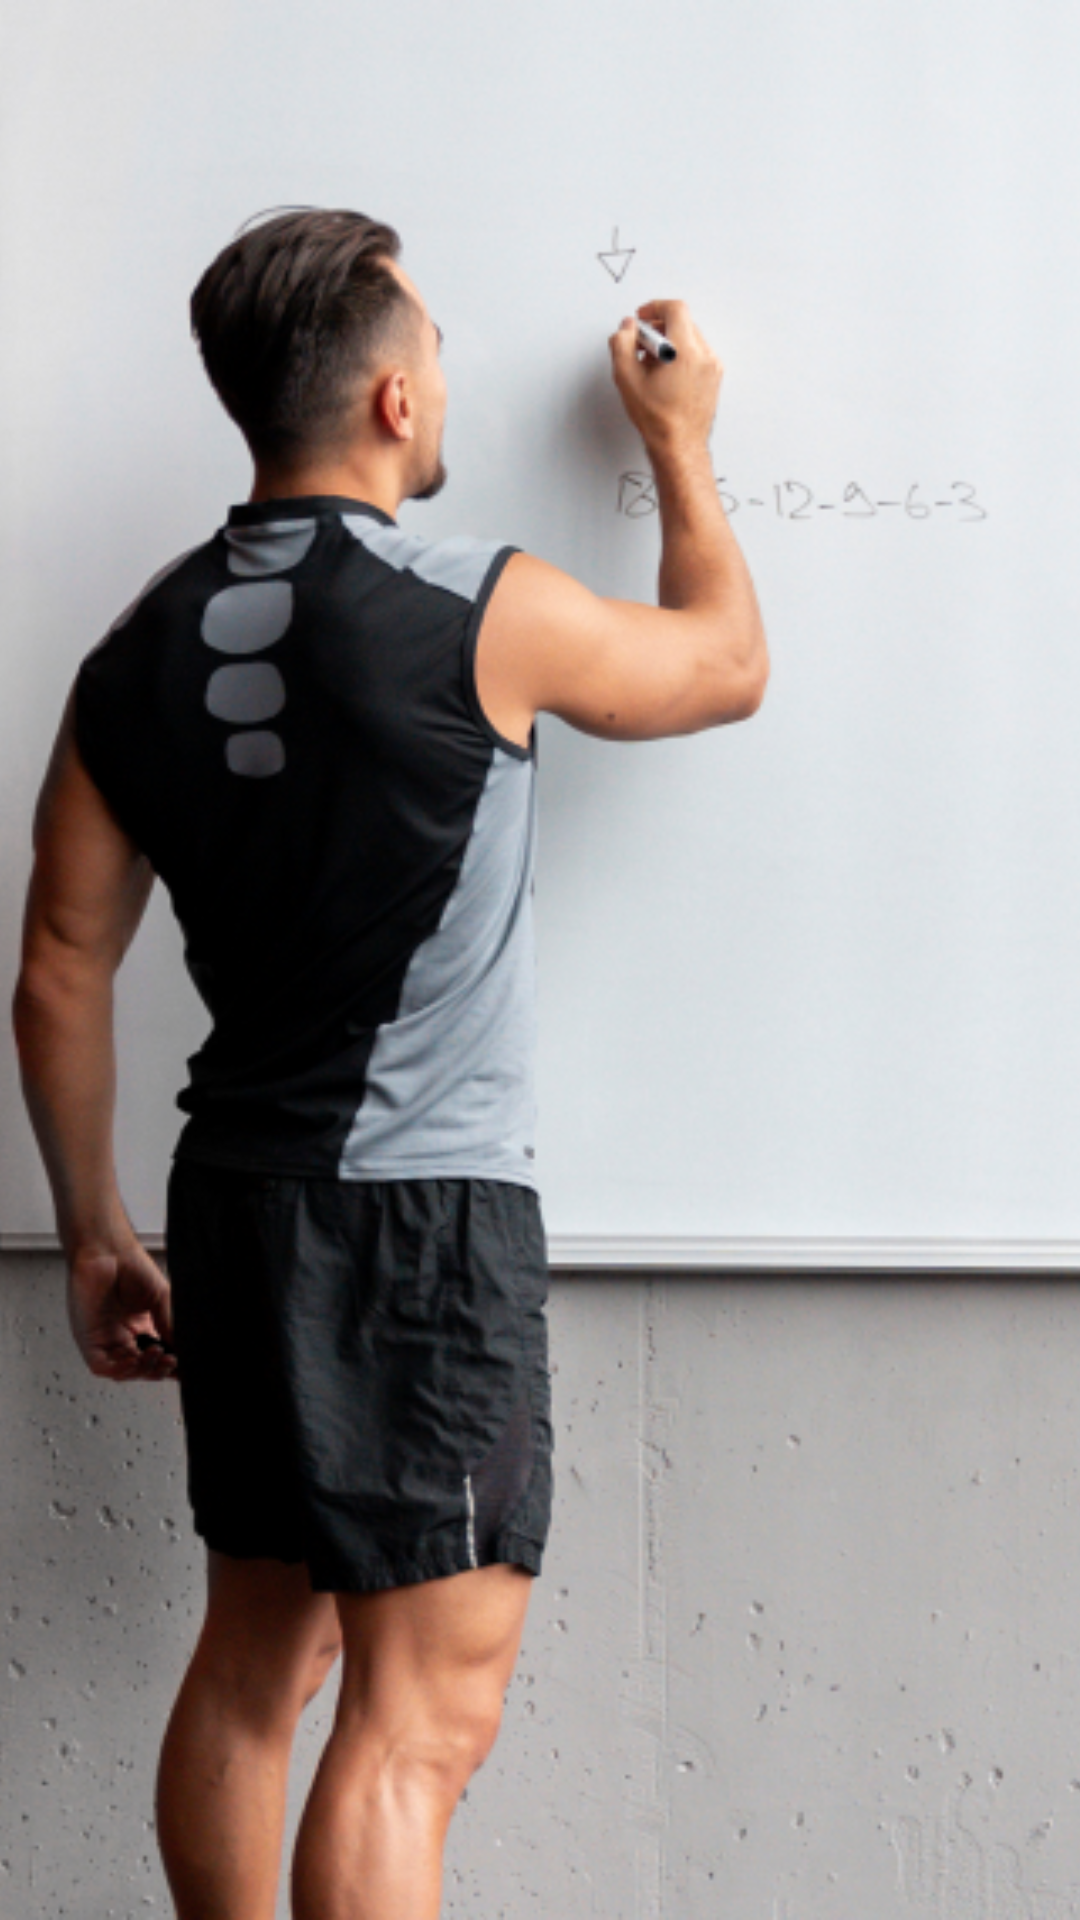 18 5-12-9-6-3